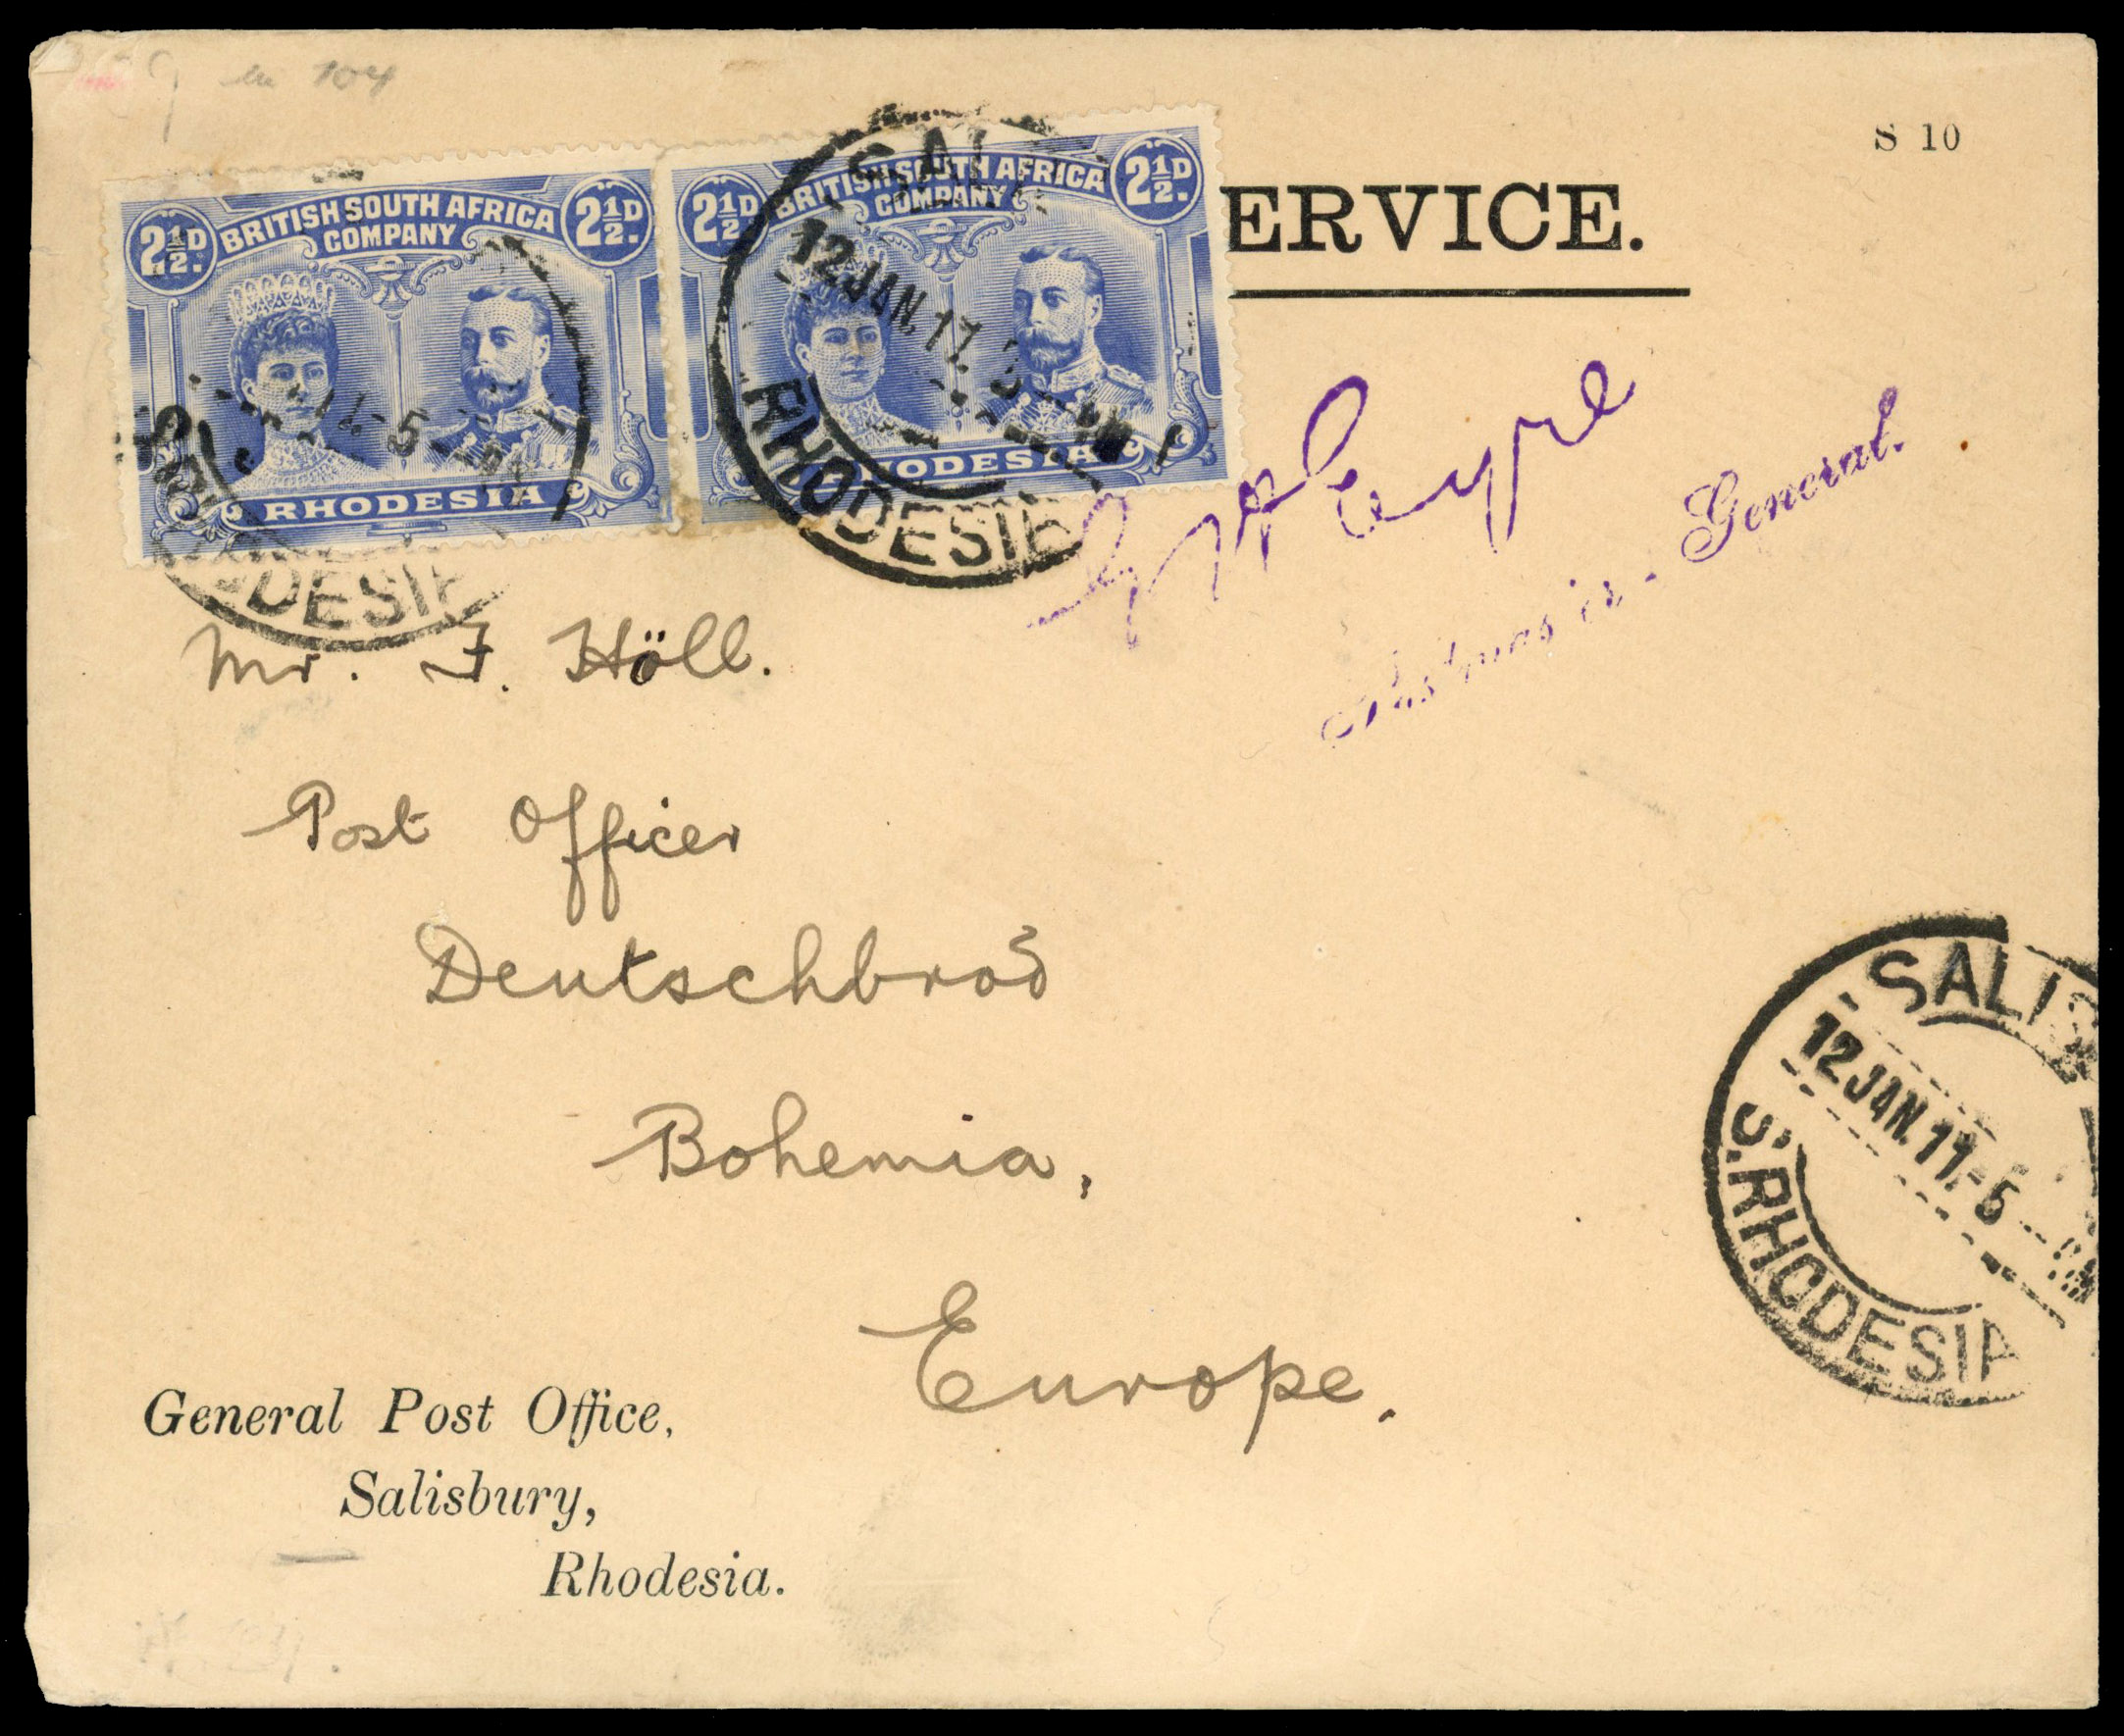 104
S 10
2½D BRITISH SOUTH AFRICA 2½D.
COMPANY
RHODESIA
2½D BRITISH SOUTH AFRICA 2½D.
COMPANY
RHODESIA
ERVICE.
SAL
12 JAN. 11
RHODESIA
5
DESIA
Eyre
Postmaster-General.
Mr. F. Höll.
Post Officer
Deutschbrod
Bohemia,
Europe.
SALISB
12 JAN. 11 - 5
S. RHODESIA
General Post Office,
Salisbury,
Rhodesia.